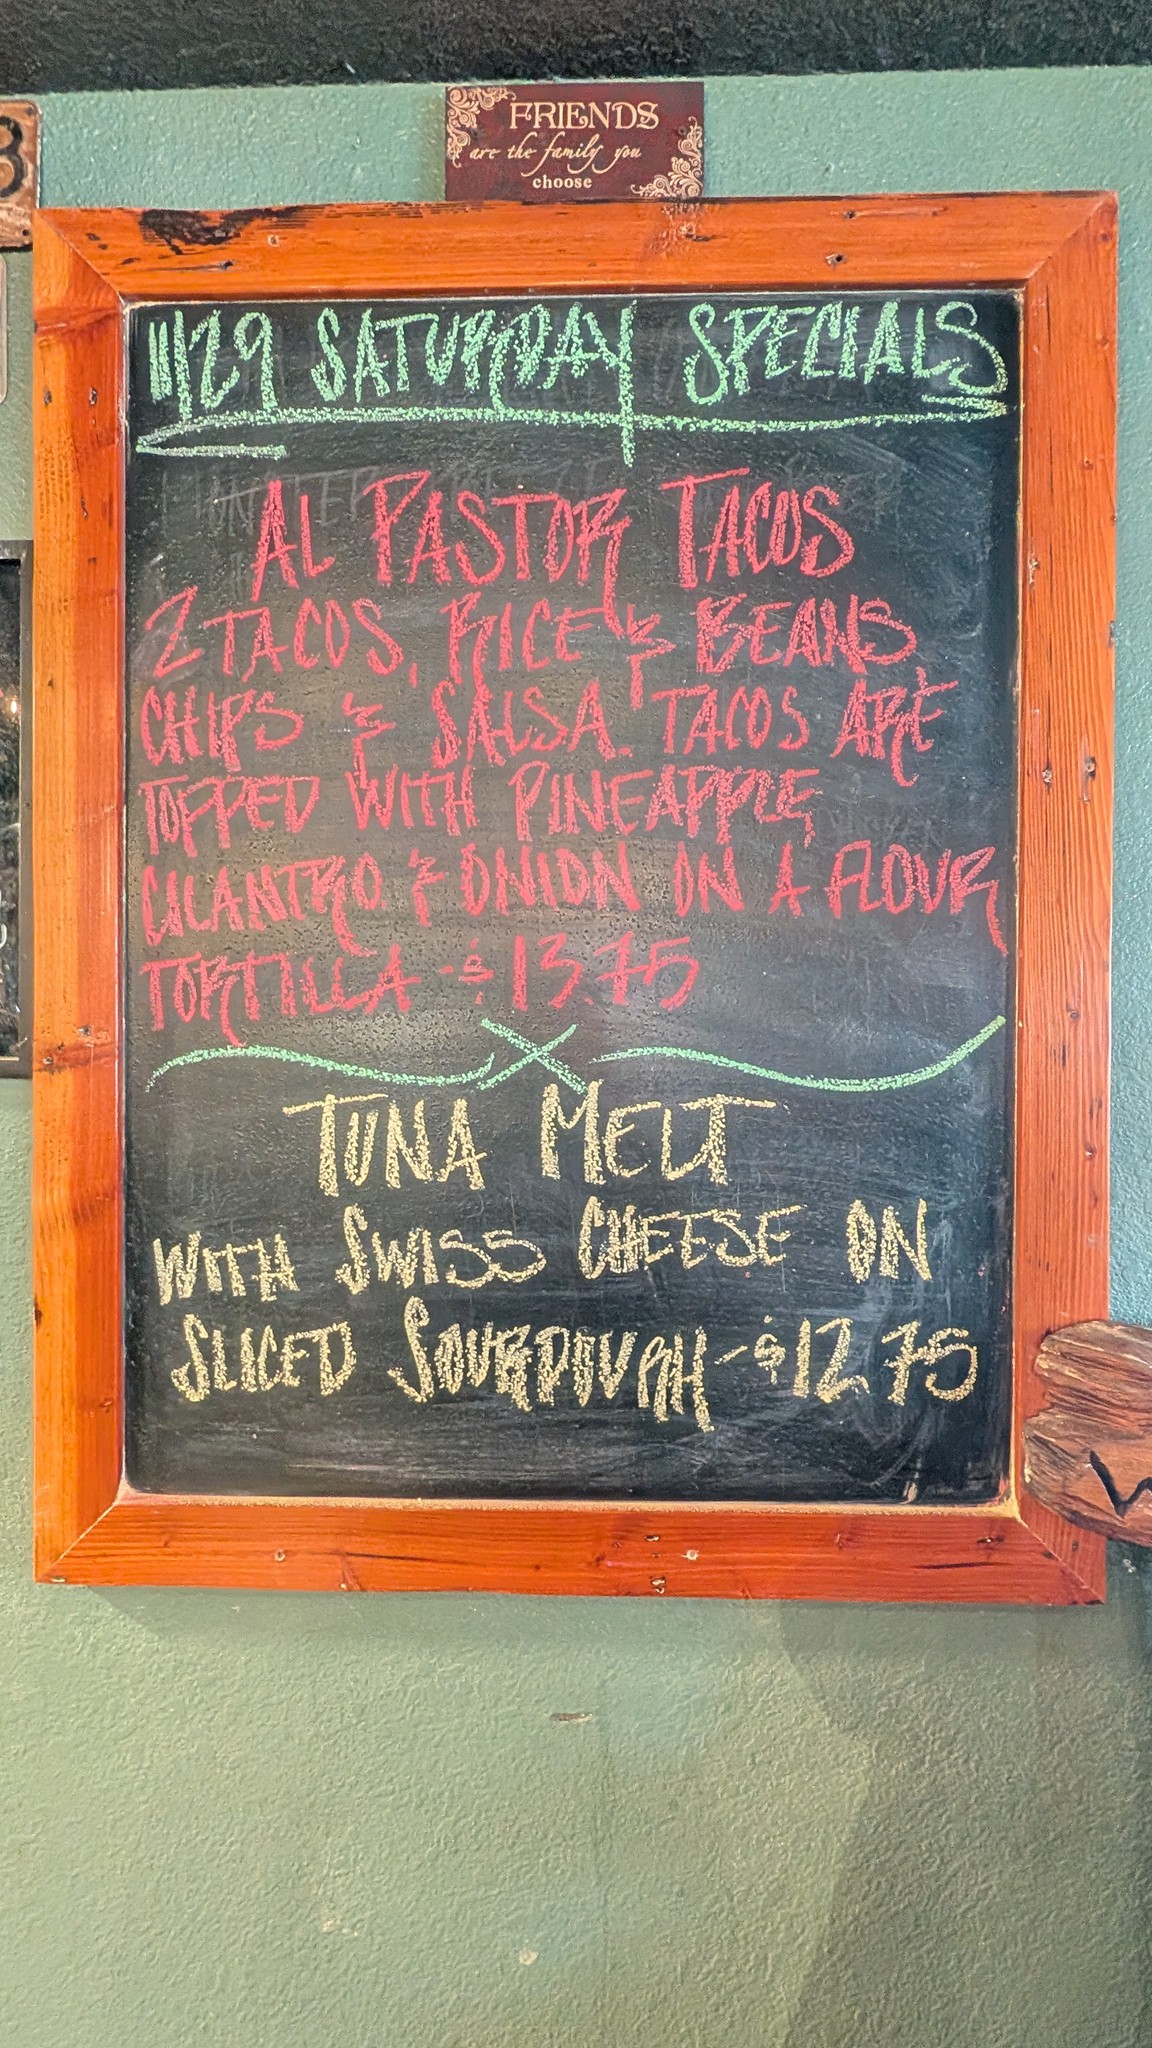 FRIENDS
are the family you
choose
11/29 SATURDAY SPECIALS
AL PASTOR TACOS
2 TACOS, RICE & BEANS,
CHIPS & SALSA. TACOS ARE
TOPPED WITH PINEAPPLE,
CILANTRO & ONION ON A FLOUR
TORTILLA - $13.75
TUNA MELT
WITH SWISS CHEESE ON
SLICED SOURDOUGH - $12.75